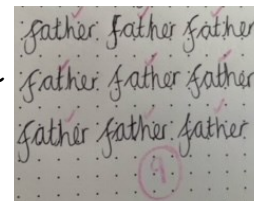 father. father father
father. father father
father father. father.
9